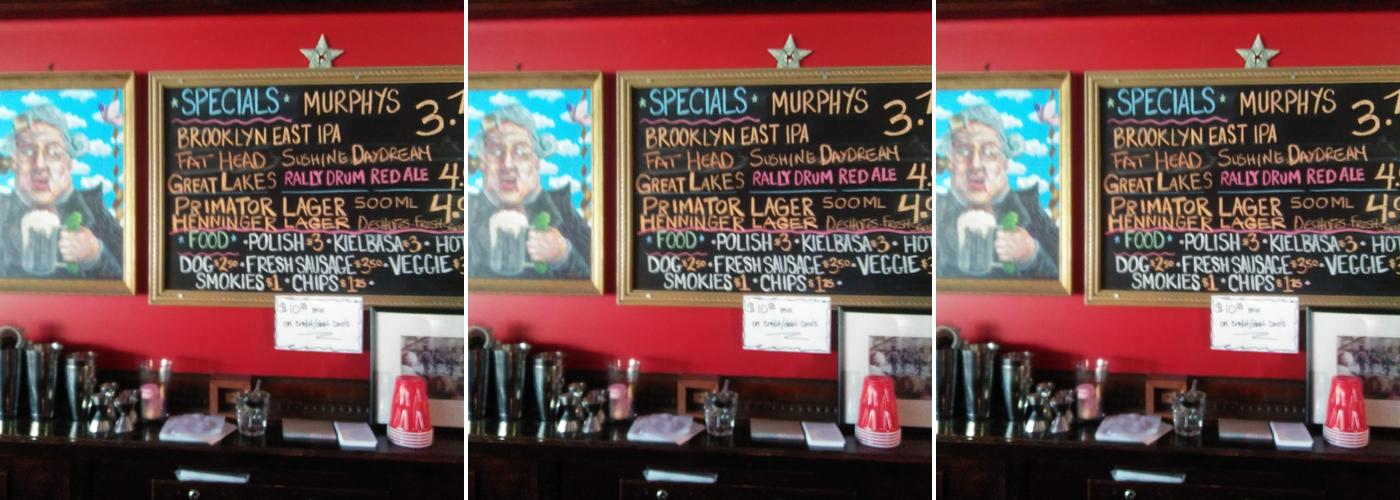 SPECIALS MURPHYS 3.7
BROOKLYN EAST IPA
FAT HEAD SUSHINE DAYDREAM
GREAT LAKES RALLY DRUM RED ALE 4.
PRIMATOR LAGER 500ML 4.
HENNINGER LAGER DESHUTES FRESH
FOOD • POLISH $3 • KIELBASA $3 • HOT
DOG $2.50 • FRESH SAUSAGE $3.50 • VEGGIE $3
SMOKIES $1 • CHIPS $1.25 •
$10.00 min
on credit/debit cards
SPECIALS MURPHYS 3.7
BROOKLYN EAST IPA
FAT HEAD SUSHINE DAYDREAM
GREAT LAKES RALLY DRUM RED ALE 4.
PRIMATOR LAGER 500ML 4.
HENNINGER LAGER DESHUTES FRESH
FOOD • POLISH $3 • KIELBASA $3 • HOT
DOG $2.50 • FRESH SAUSAGE $3.50 • VEGGIE $3
SMOKIES $1 • CHIPS $1.25 •
$10.00 min
on credit/debit cards
SPECIALS MURPHYS 3.7
BROOKLYN EAST IPA
FAT HEAD SUSHINE DAYDREAM
GREAT LAKES RALLY DRUM RED ALE 4.
PRIMATOR LAGER 500ML 4.
HENNINGER LAGER DESHUTES FRESH
FOOD • POLISH $3 • KIELBASA $3 • HOT
DOG $2.50 • FRESH SAUSAGE $3.50 • VEGGIE $3
SMOKIES $1 • CHIPS $1.25 •
$10.00 min
on credit/debit cards